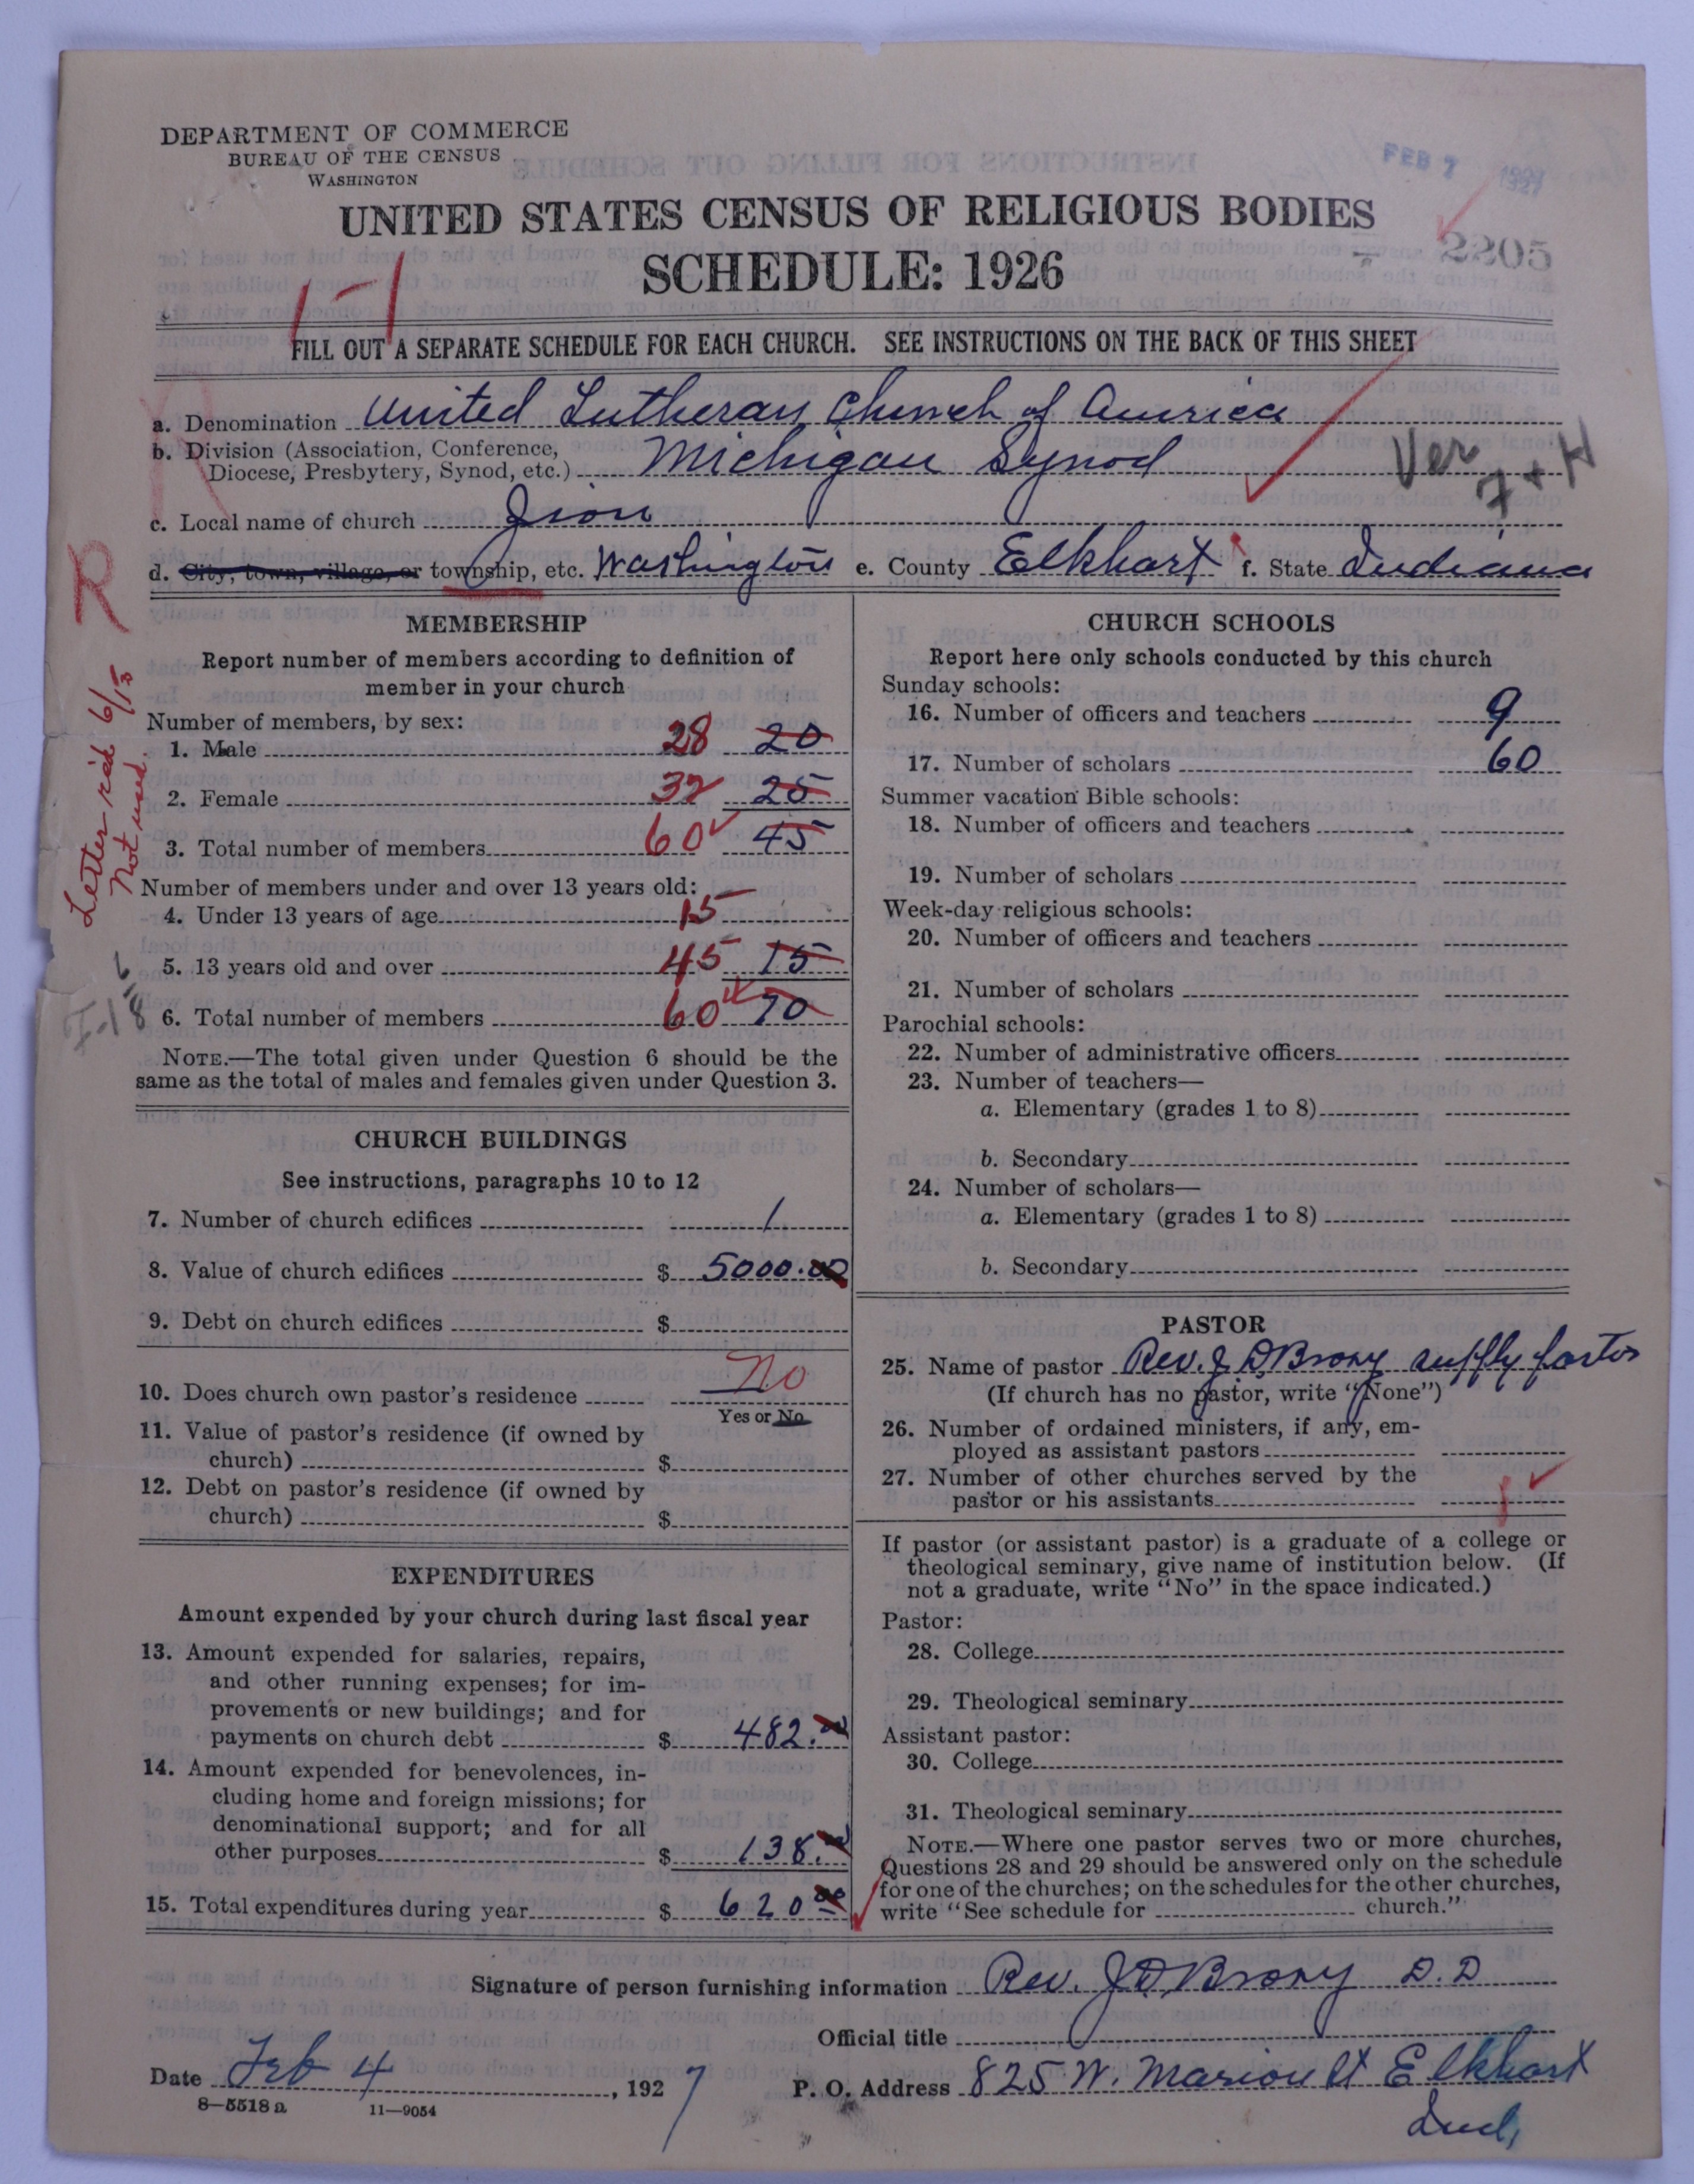 DEPARTMENT OF COMMERCE
BUREAU OF THE CENSUS
WASHINGTON
FEB 7 1927
UNITED STATES CENSUS OF RELIGIOUS BODIES
SCHEDULE: 1926
2205
1-1
FILL OUT A SEPARATE SCHEDULE FOR EACH CHURCH. SEE INSTRUCTIONS ON THE BACK OF THIS SHEET
a. Denomination United Lutheran Church of America
b. Division (Association, Conference,
Diocese, Presbytery, Synod, etc.) Michigan Synod
Ver 7+H
c. Local name of church Zion
d. City, town, village, or township, etc. Washington e. County Elkhart f. State Indiana
R
Letter rec'd 6/13
Not used.
MEMBERSHIP
Report number of members according to definition of
member in your church
Number of members, by sex:
1. Male 28 20
2. Female 32 25
3. Total number of members 60 45
Number of members under and over 13 years old:
4. Under 13 years of age 15
5. 13 years old and over 45 15
6. Total number of members 60 70
NOTE.—The total given under Question 6 should be the
same as the total of males and females given under Question 3.
CHURCH BUILDINGS
See instructions, paragraphs 10 to 12
7. Number of church edifices 1
8. Value of church edifices $ 5000.00
9. Debt on church edifices $
10. Does church own pastor's residence No
Yes or No
11. Value of pastor's residence (if owned by
church) $
12. Debt on pastor's residence (if owned by
church) $
EXPENDITURES
Amount expended by your church during last fiscal year
13. Amount expended for salaries, repairs,
and other running expenses; for im-
provements or new buildings; and for
payments on church debt $ 482.00
14. Amount expended for benevolences, in-
cluding home and foreign missions; for
denominational support; and for all
other purposes $ 138.00
15. Total expenditures during year $ 620 00
CHURCH SCHOOLS
Report here only schools conducted by this church
Sunday schools:
16. Number of officers and teachers 9
17. Number of scholars 60
Summer vacation Bible schools:
18. Number of officers and teachers
19. Number of scholars
Week-day religious schools:
20. Number of officers and teachers
21. Number of scholars
Parochial schools:
22. Number of administrative officers
23. Number of teachers—
a. Elementary (grades 1 to 8)
b. Secondary
24. Number of scholars—
a. Elementary (grades 1 to 8)
b. Secondary
PASTOR
25. Name of pastor Rev. J D Brosy supply pastor
(If church has no pastor, write "None")
26. Number of ordained ministers, if any, em-
ployed as assistant pastors
27. Number of other churches served by the
pastor or his assistants 1
If pastor (or assistant pastor) is a graduate of a college or
theological seminary, give name of institution below. (If
not a graduate, write "No" in the space indicated.)
Pastor:
28. College
29. Theological seminary
Assistant pastor:
30. College
31. Theological seminary
NOTE.—Where one pastor serves two or more churches,
Questions 28 and 29 should be answered only on the schedule
for one of the churches; on the schedules for the other churches,
write "See schedule for church."
Signature of person furnishing information Rev. J D Brosy D.D
Official title
Date Feb 4, 1927 P. O. Address 825 W. Marion St Elkhart
Ind,
8—5518a 11—9054